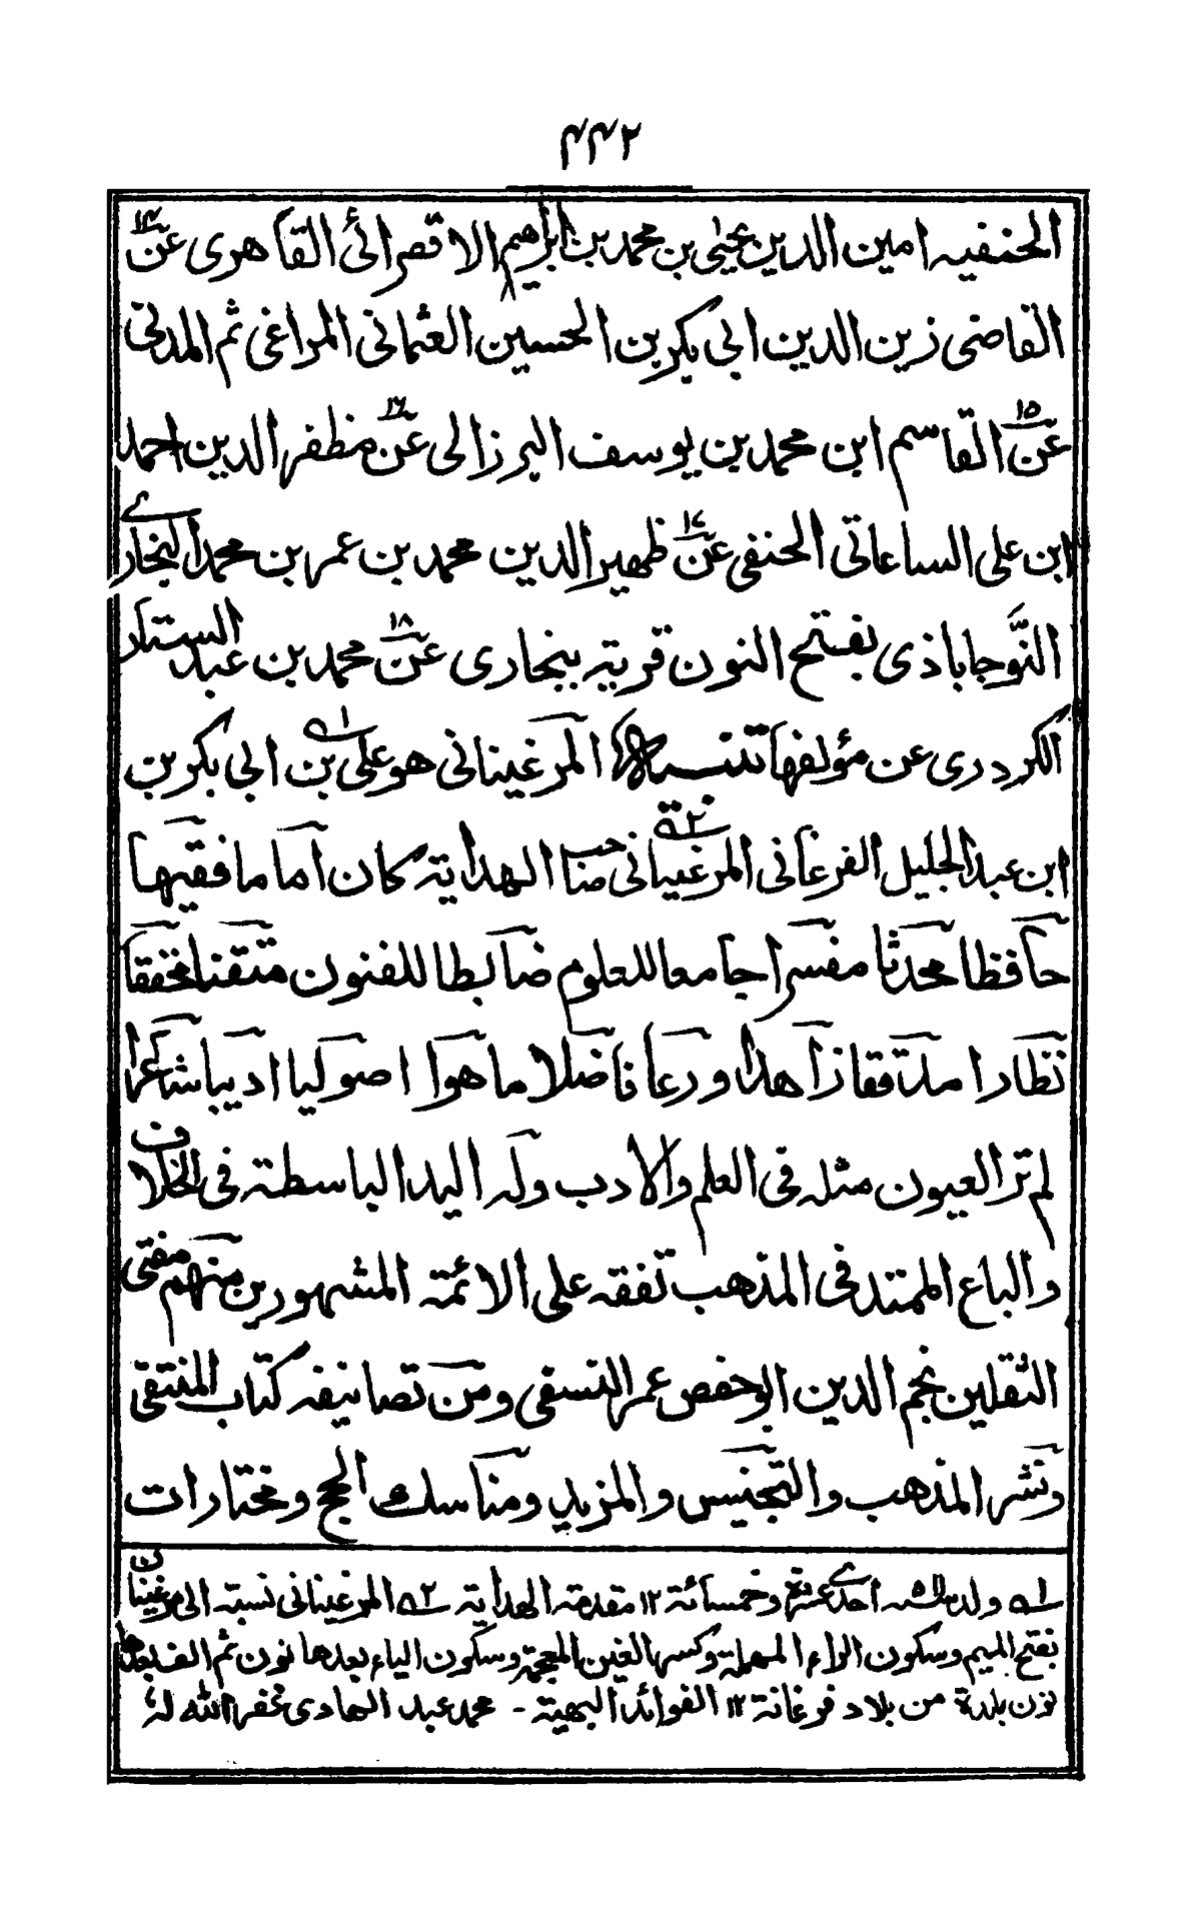 ۴۴۲
الحنفيه امين الدين يحيى بن محمد بن ابراهيم الاقصرائى القاهرى عن ١٤
القاضى زين الدين ابى بكر بن الحسين العثمانى المراغى ثم المدنى
عن ١٥ القاسم ابن محمد بن يوسف البرزالى عن ١٦ مظفر الدين احمد
ابن على الساعاتى الحنفى عن ١٧ ظهير الدين محمد بن عمر بن محمد البخارے
النَّوجاباذى بفتح النون قرية ببخارى عن ١٨ محمد بن عبد الستار
الكردرى عن مؤلفها تنبيه المرغينانى هو على ١ بن ابى بكر بن
ابن عبد الجليل الفرغانى المرغينانى ٢ صاحب الهداية كان اماما فقيها
حافظا محدثا مفسرا جامعا للعلوم ضابطا للفنون متقنا محققا
نظارا مدققا زاهدا ورعا فاضلا ماهرا اصوليا اديبا شاعرا
لم تر العيون مثله فى العلم والادب وله اليد الباسطة فى الخلاف
والباع الممتد فى المذهب تفقه على الائمة المشهورين منهم مفتى
الثقلين نجم الدين ابوحفص عمر النسفى ومن تصانيفه كتاب المنتقى
ونشر المذهب والتجنيس والمزيد ومناسك الحج ومختارات
١؎ ولد ٥١١ھ احدے عشرة وخمسائة ١٢ مقدمة الهداية ٢؎ المرغينانى نسبة الى مرغينان
بفتح الميم وسكون الراء المهملة وكسر الغين المعجمة وسكون الياء بعدها نون ثم الف بعدها
نون بلدة من بلاد فرغانة ١٢ الفوائد البهية - محمد عبد الهادى غفر الله له